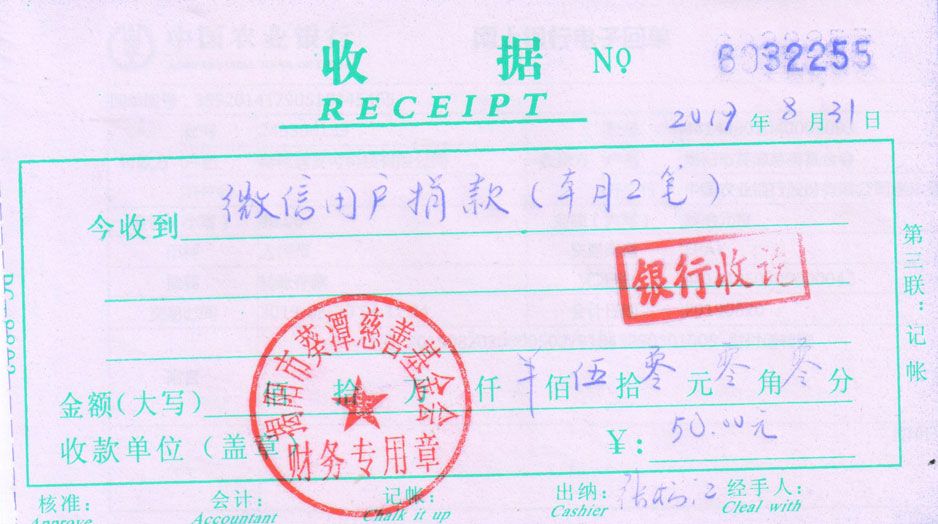 收 据 Nº 6032255
RECEIPT
2019 年 8 月 31 日
今收到 微信用户捐款(本月2笔)
银行收讫
第三联:记帐
揭阳市葵潭慈善基金会
财务专用章
金额(大写) 佰 拾 万 仟 佰 伍 拾 零 元 零 角 零 分
收款单位(盖章) ¥: 50.00元
核准: 会计: 记帐: 出纳: 经手人:
Approve Accountant Chalk it up Cashier Cleal with